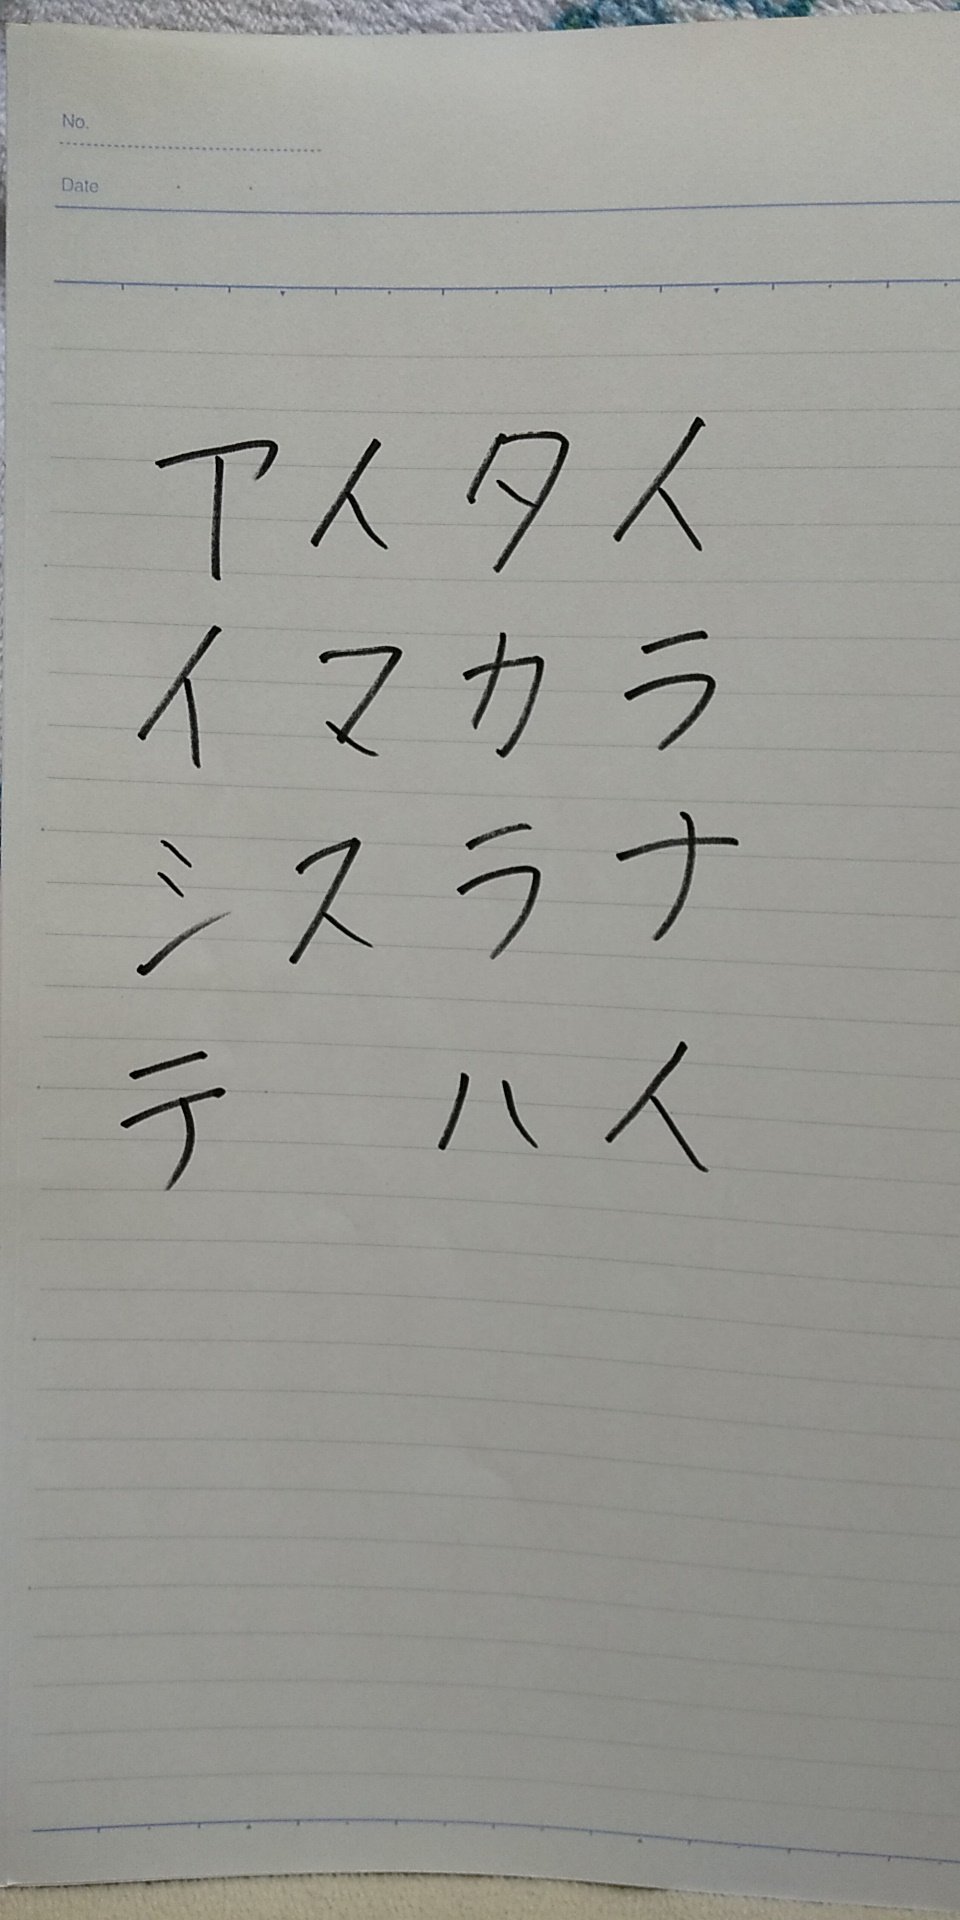 No.
Date
アイタイ
イマカラ
シスラナ
テ ハイ